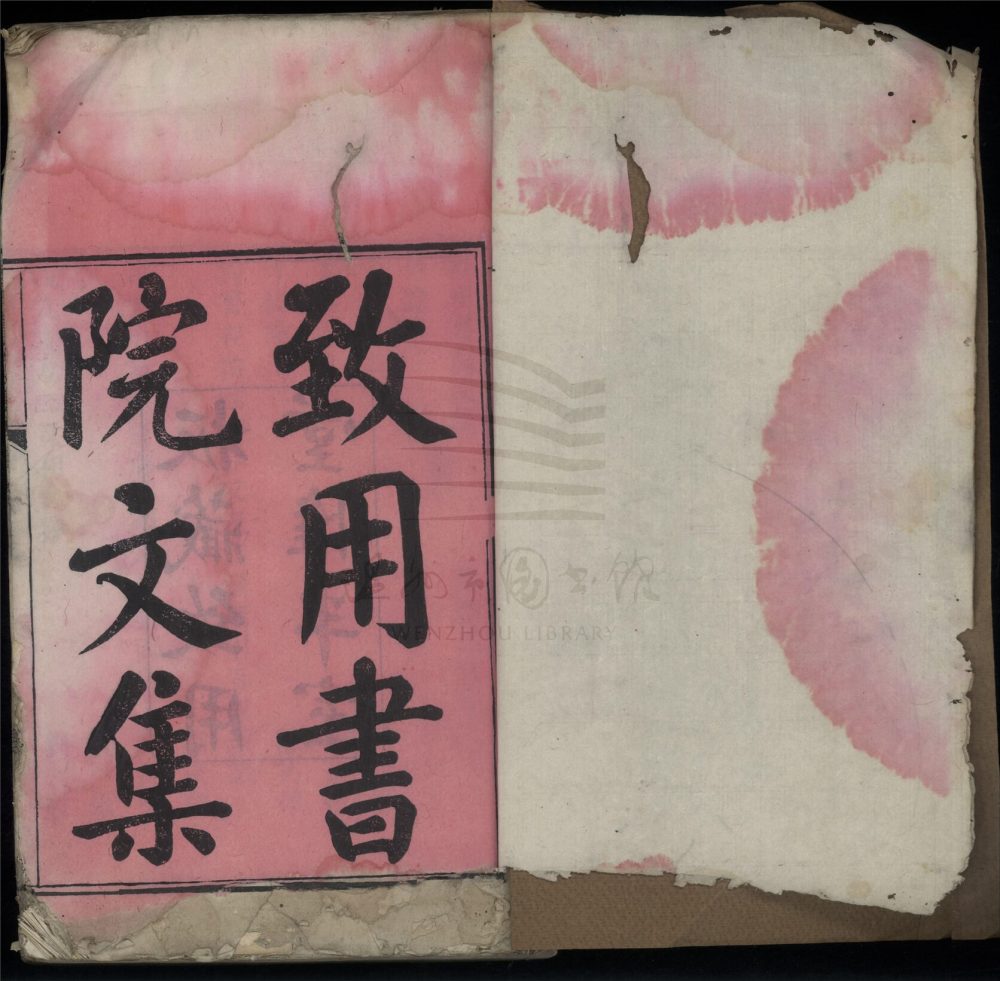 致用書
院文集
溫州市圖書館
WENZHOU LIBRARY